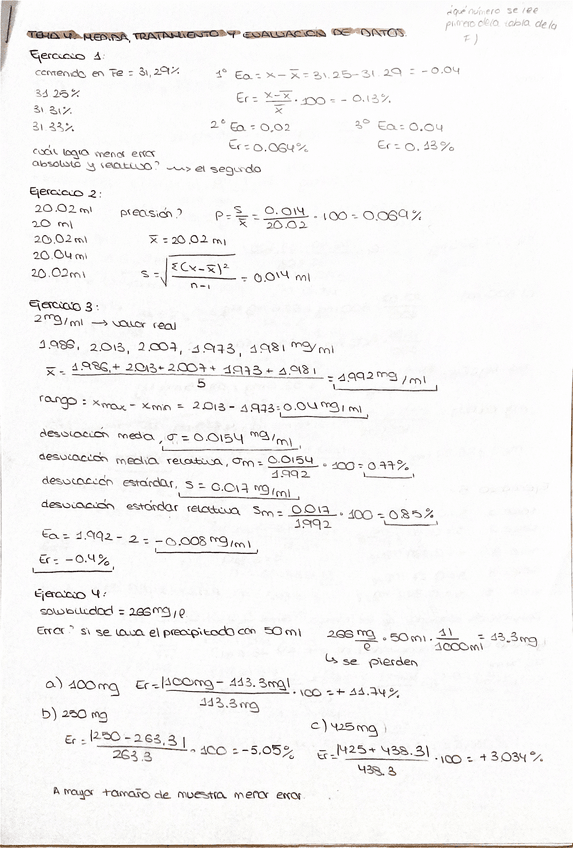 ¿qué número se lee
primero de la tabla de la
F)
TEMA 4. MEDIDA, TRATAMIENTO Y EVALUACIÓN DE DATOS.
Ejercicio 1:
contenido en Fe = 31,29%
1° Ea = x - x̄ = 31.25 - 31.29 = -0.04
31 25%
31 31%
31 33%
Er = (x - x̄)/x̄ · 100 = -0.13%
2° Ea = 0.02
3° Ea = 0.04
Er = 0.064%
Er = 0.13%
cuál logra menor error
absoluto y relativo? ⇝ el segundo
Ejercicio 2:
20.02 ml
20 ml
20.02 ml
20.04 ml
20.02 ml
precisión?
P = s/x̄ = 0.014/20.02 · 100 = 0.069%
x̄ = 20.02 ml
s = √(Σ(x - x̄)²/(n-1)) = 0.014 ml
Ejercicio 3:
2 mg/ml → valor real
1.986, 2.013, 2.007, 1.973, 1.981 mg/ml
x̄ = (1.986 + 2.013 + 2.007 + 1.973 + 1.981)/5 = 1.992 mg/ml
rango: xmax - xmin = 2.013 - 1.973 = 0.04 mg/ml
desviación media, σ = 0.0154 mg/ml
desviación media relativa, σm = 0.0154/1.992 · 100 = 0.77%
desviación estándar, s = 0.017 mg/ml
desviación estándar relativa Sm = 0.017/1.992 · 100 = 0.85%
Ea = 1.992 - 2 = -0.008 mg/ml
Er = -0.4%
Ejercicio 4:
solubilidad = 266 mg/l
Error? si se lava el precipitado con 50 ml
266 mg/l · 50 ml · 1l/1000 ml = 13.3 mg
↳ se pierden
a) 100 mg Er = |100 mg - 113.3 mg|/113.3 mg · 100 = + 11.74%
b) 250 mg
Er = |250 - 263.3|/263.3 · 100 = -5.05%
c) 425 mg
Er = |425 + 438.3|/438.3 · 100 = + 3.034%
A mayor tamaño de muestra menor error.